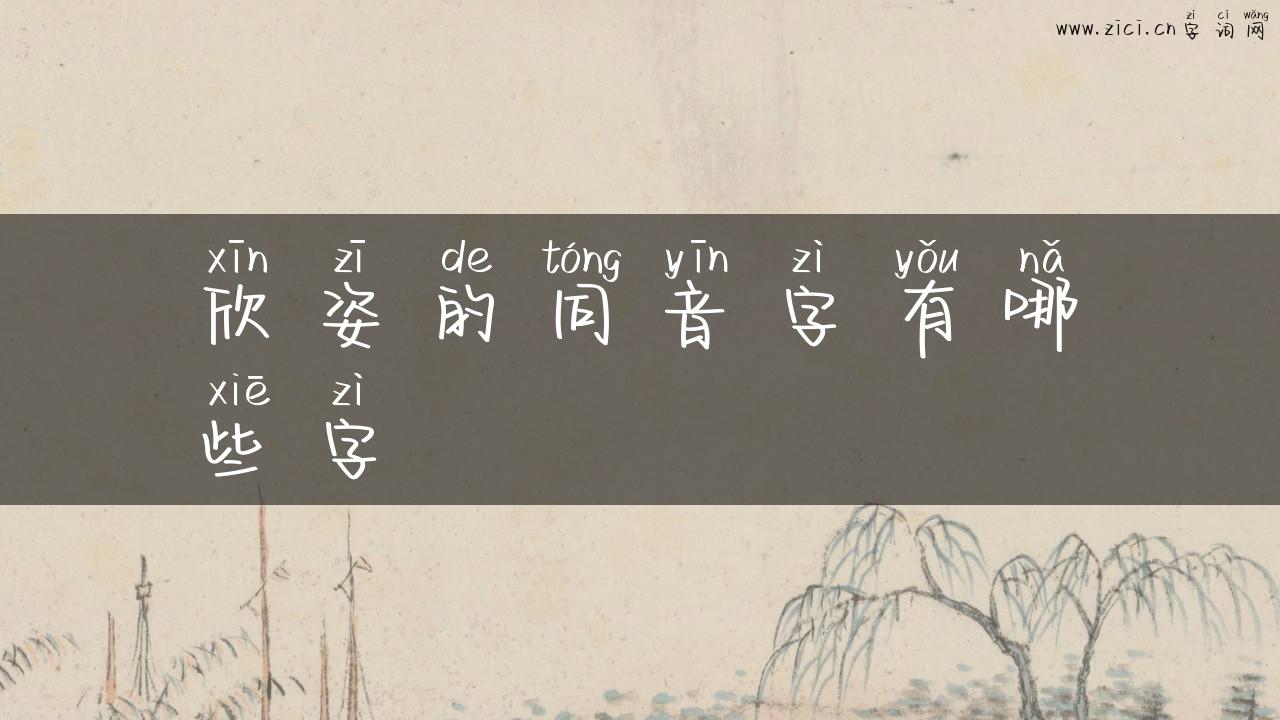 zì cí wǎng
www.zici.cn 字词网
xīn zī de tóng yīn zì yǒu nǎ
欣姿的同音字有哪
xiē zì
些字